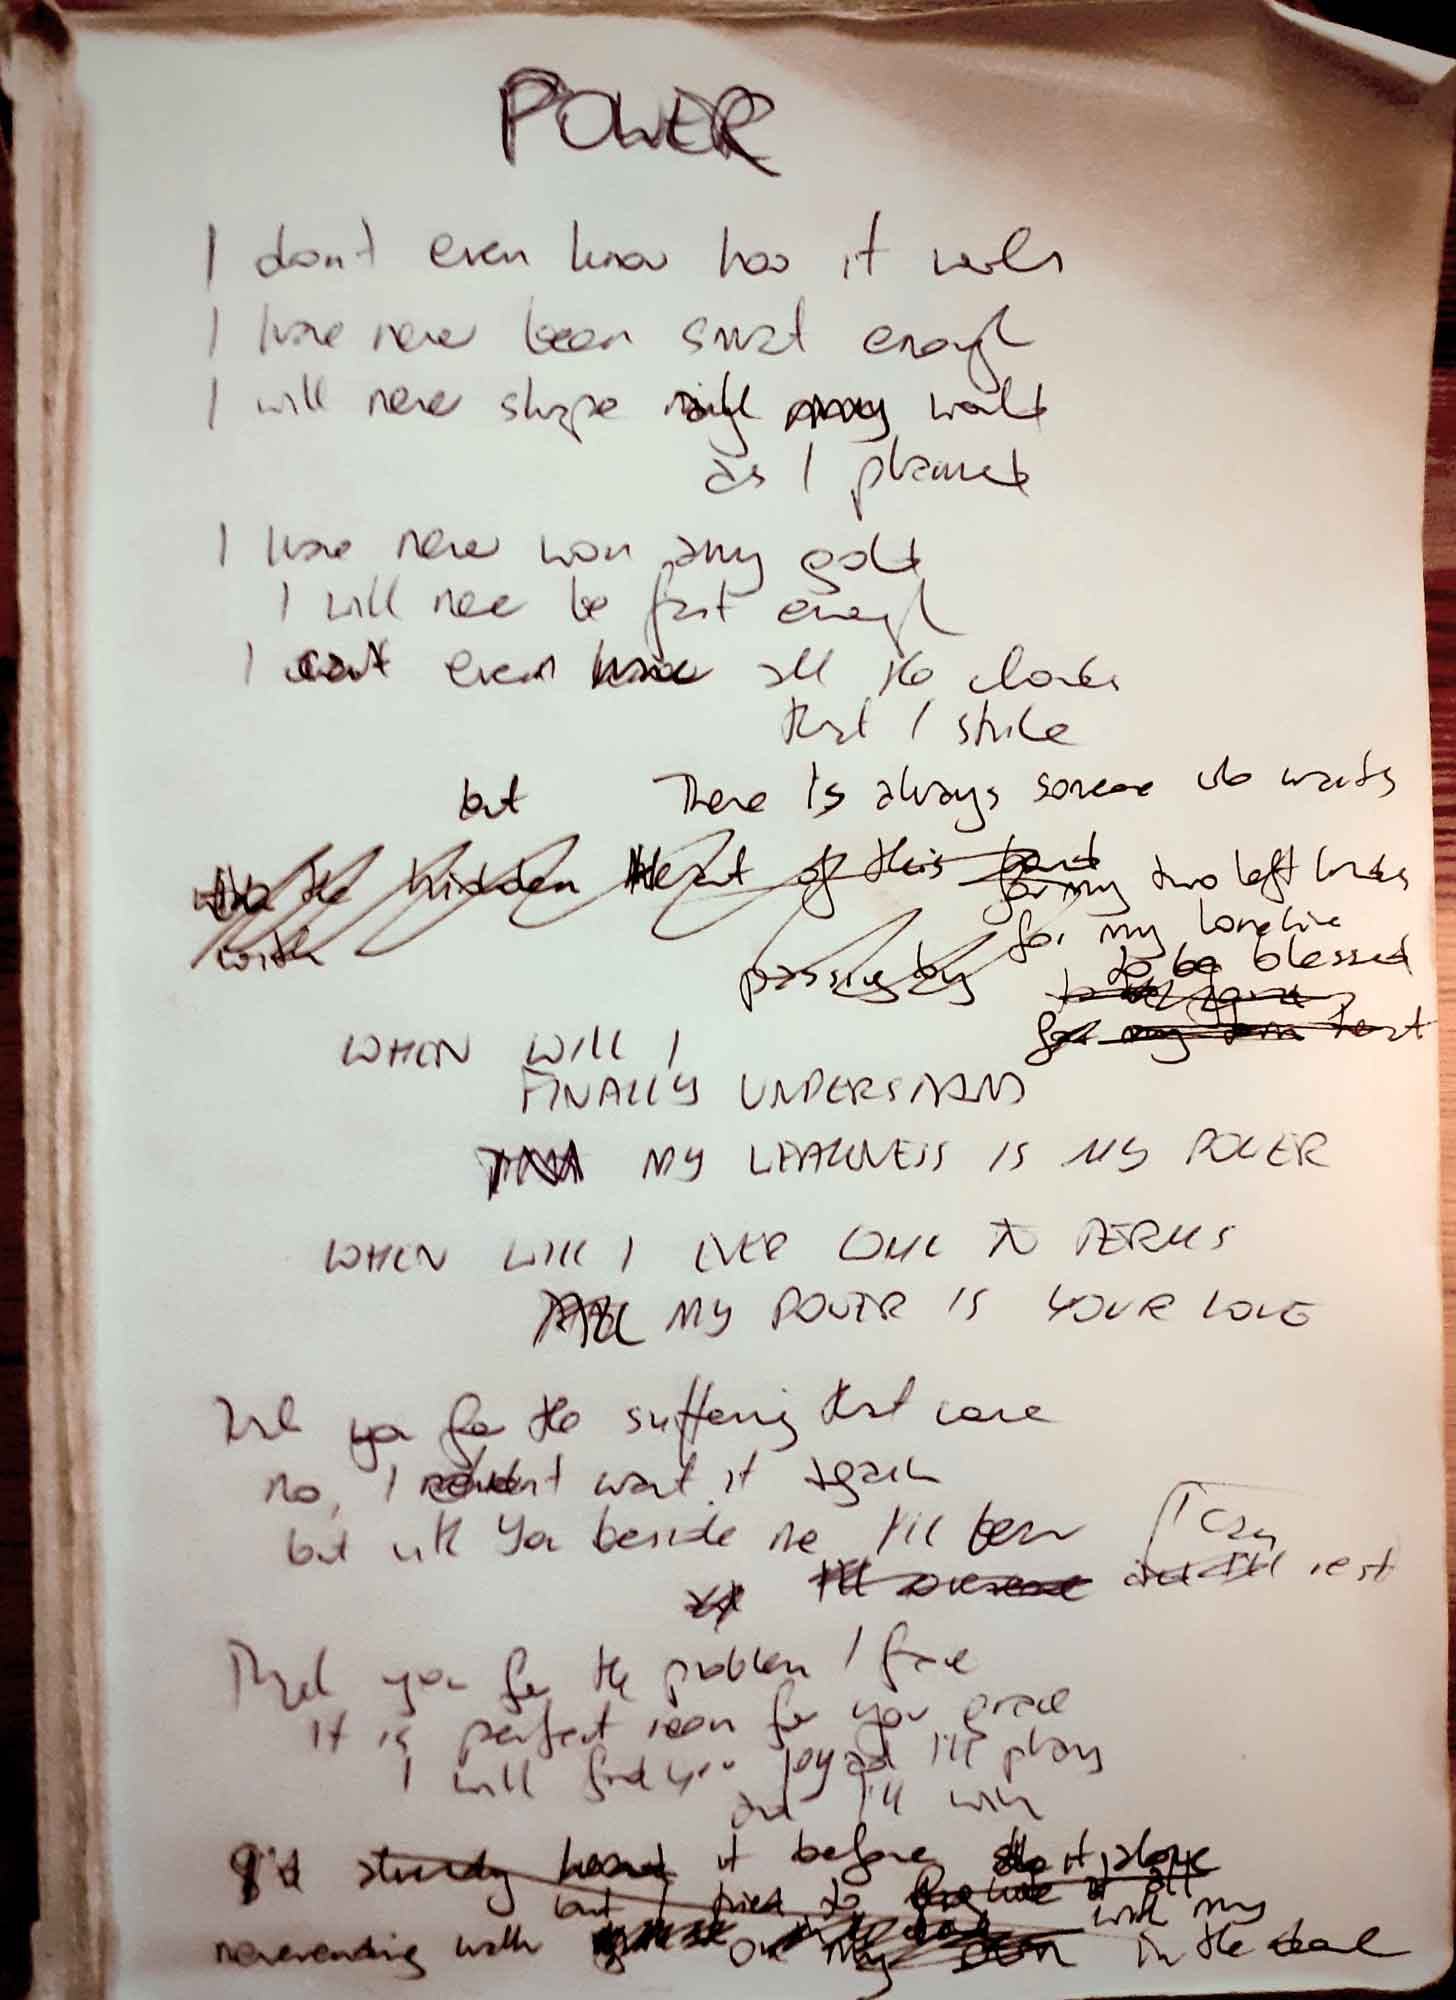 POWER
I don't even know how it works
I have never been smart enough
I will never shape my world
as I planned
I have never won any gold
I will never be fast enough
I can't even have all the
that I strike
but There is always someone who waits
the hidden of this for my two left
with for my
passing by to be blessed
for my
WHEN WILL I
FINALLY UNDERSTAND
MY WEAKNESS IS MY POWER
WHEN WILL I EVER COME TO TERMS
MY POWER IS YOUR LOVE
you for the suffering that came
no, I won't want it again
but with You beside me I'll bear I can
rest
Thank you for the problem I face
It is perfect room for your grace
I will find your joy and I'll play
and I'll win
it before
but I tried to with my
neverending walk on my own in the dark